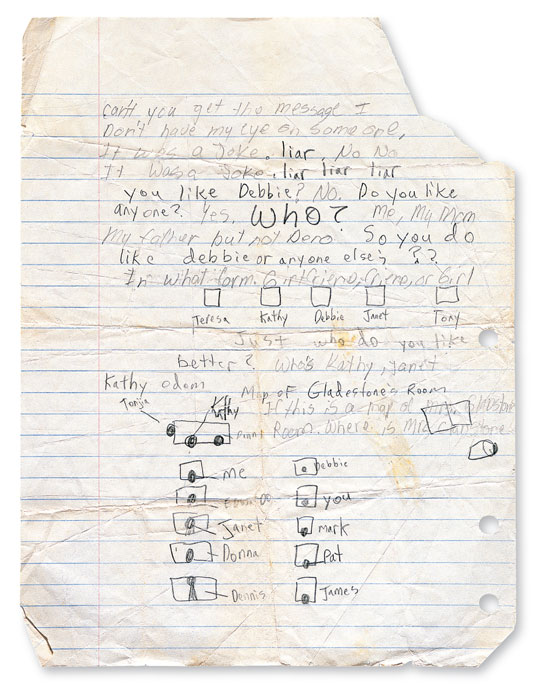 can't you get the message I
Don't have my eye on someone,
It was a Joke. liar, No No
It was a Joke, liar liar liar
you like Debbie? No. Do you like
anyone? Yes, WHO? Me, My Mom
My father but not Doro So you do
like debbie or anyone else; ??
In what form. Girlfriend, friend, or Girl
Teresa Kathy Debbie Janet Tony
Just who do you like
better? Who's Kathy, janet
Kathy odom Map of Gladestone's Room
Tonja Kathy If this is a map of
Room. Where is Mrs
me Debbie
you
Janet mark
Donna Pat
Dennis James